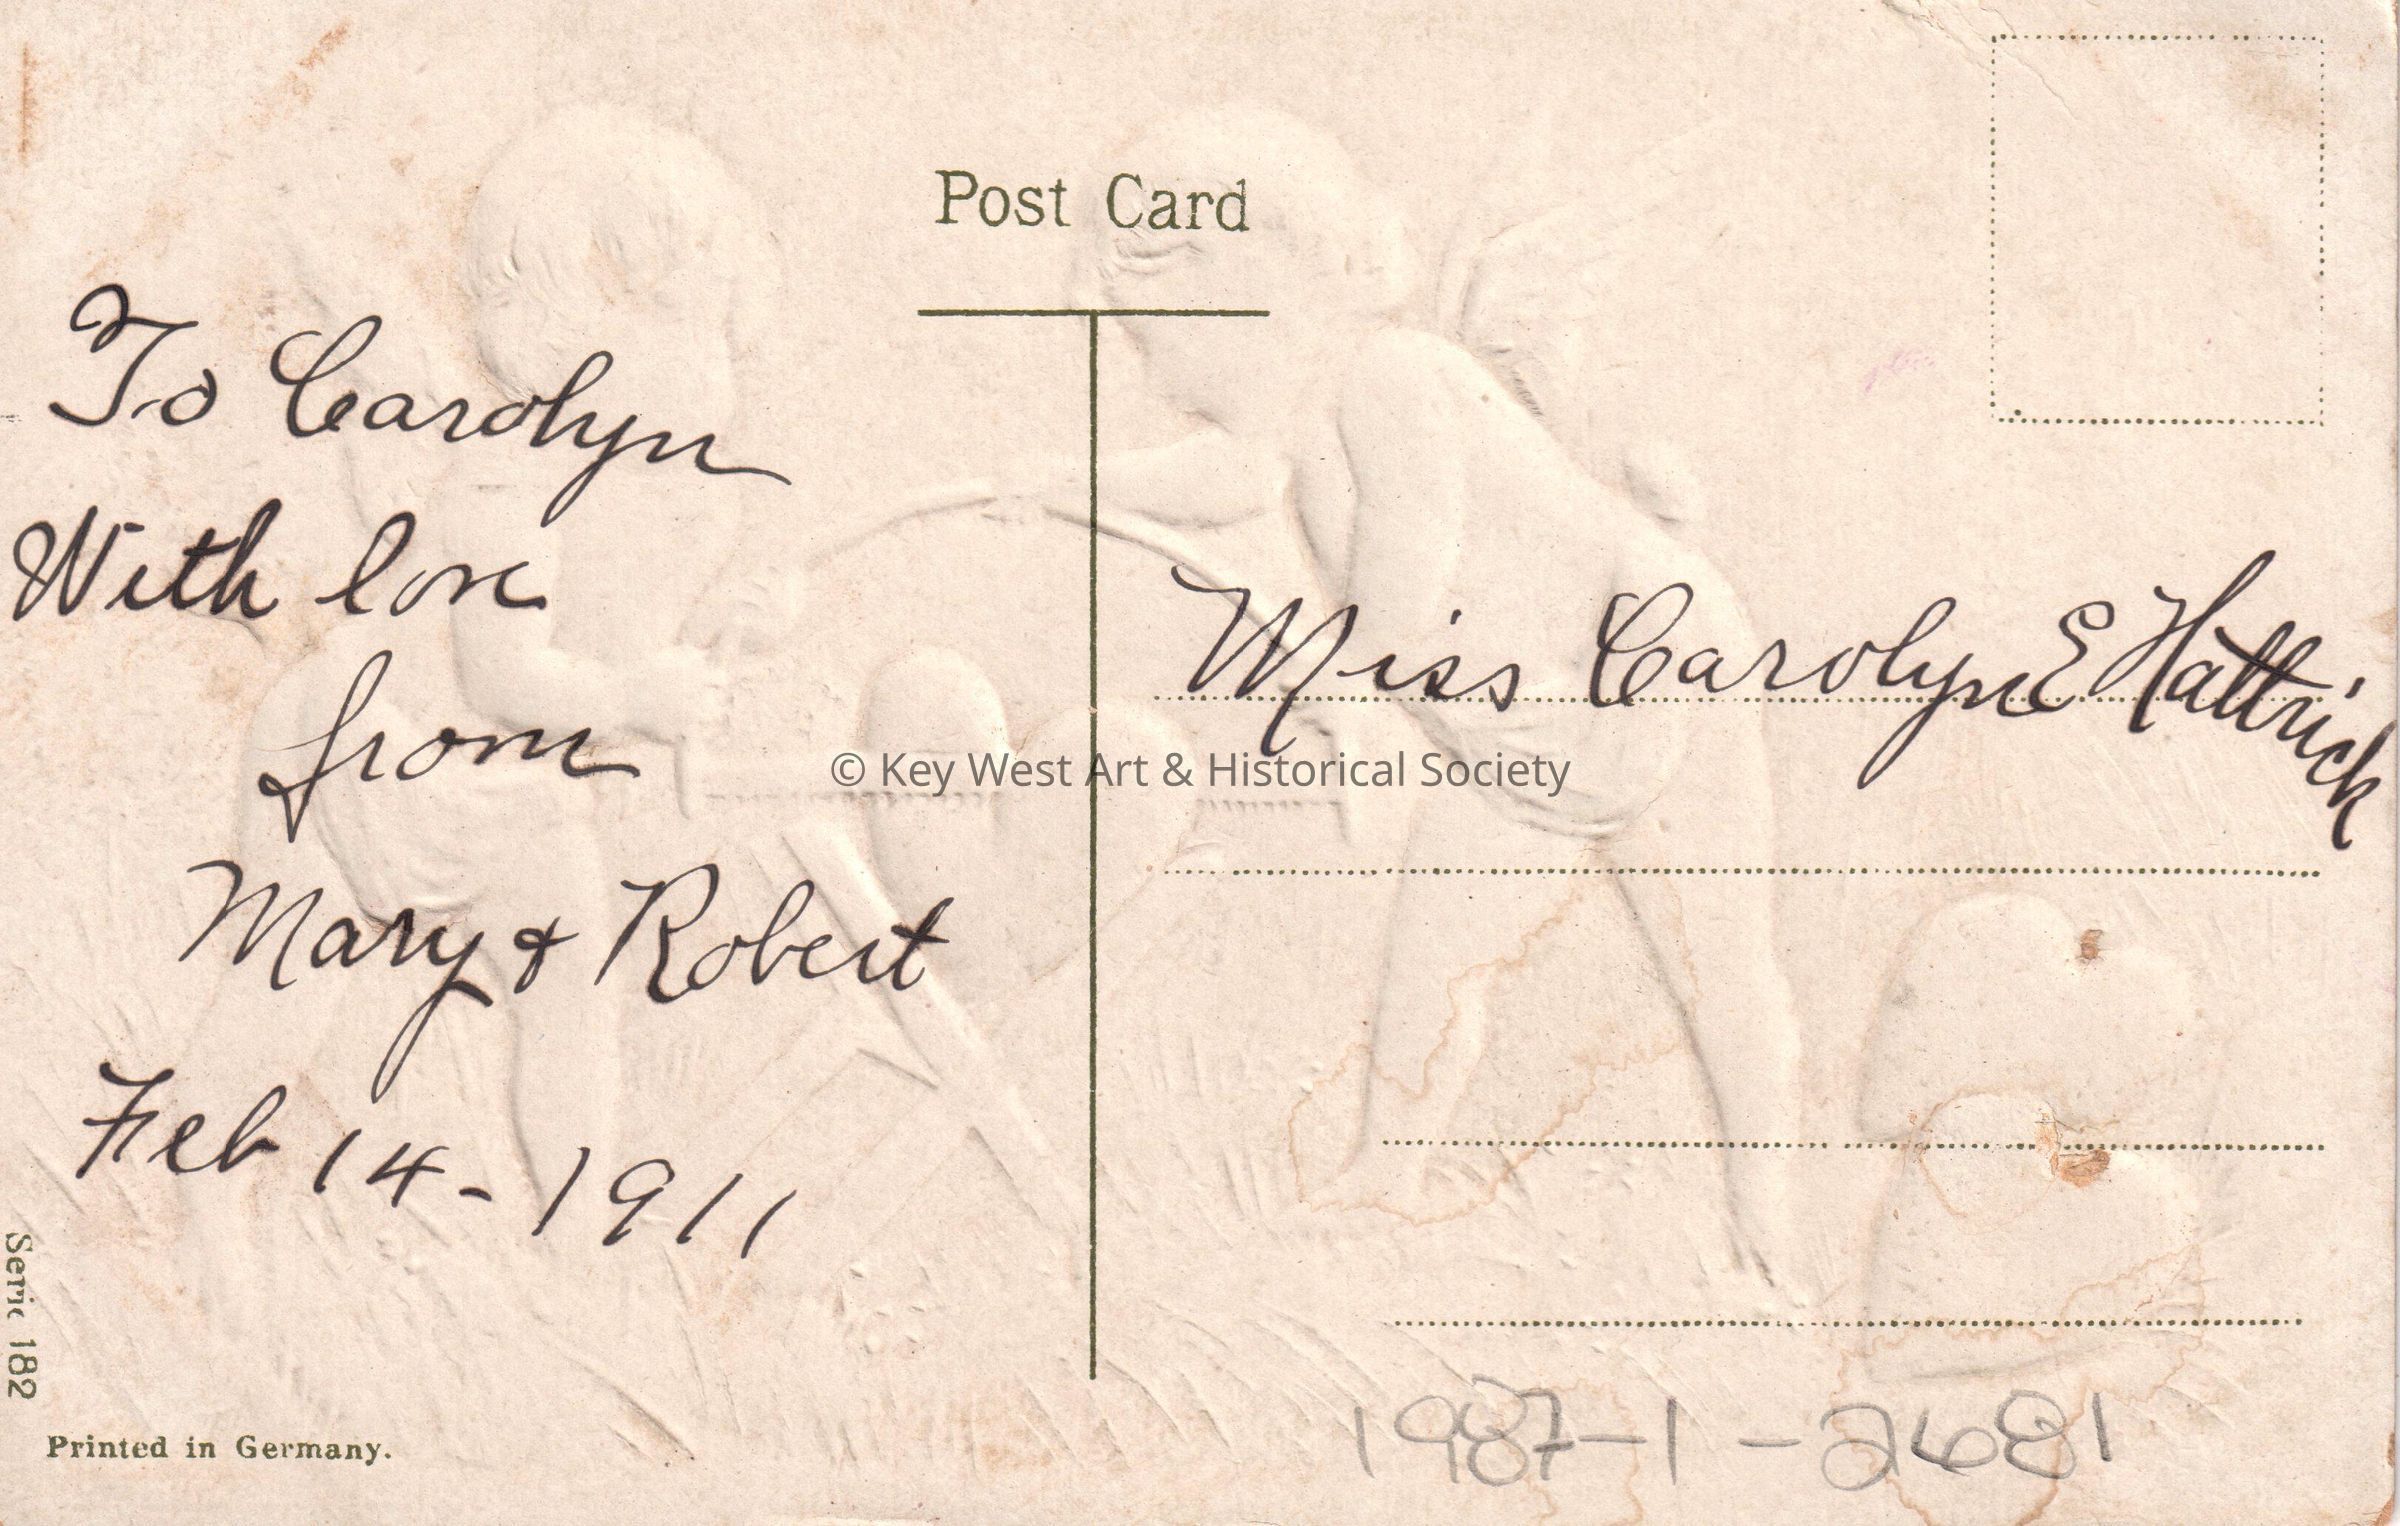 Post Card
To Carolyn
With love
from
Mary & Robert
Feb 14-1911
Miss Carolyn E Hattrick
© Key West Art & Historical Society
Serie 182
Printed in Germany.
1987-1-2681